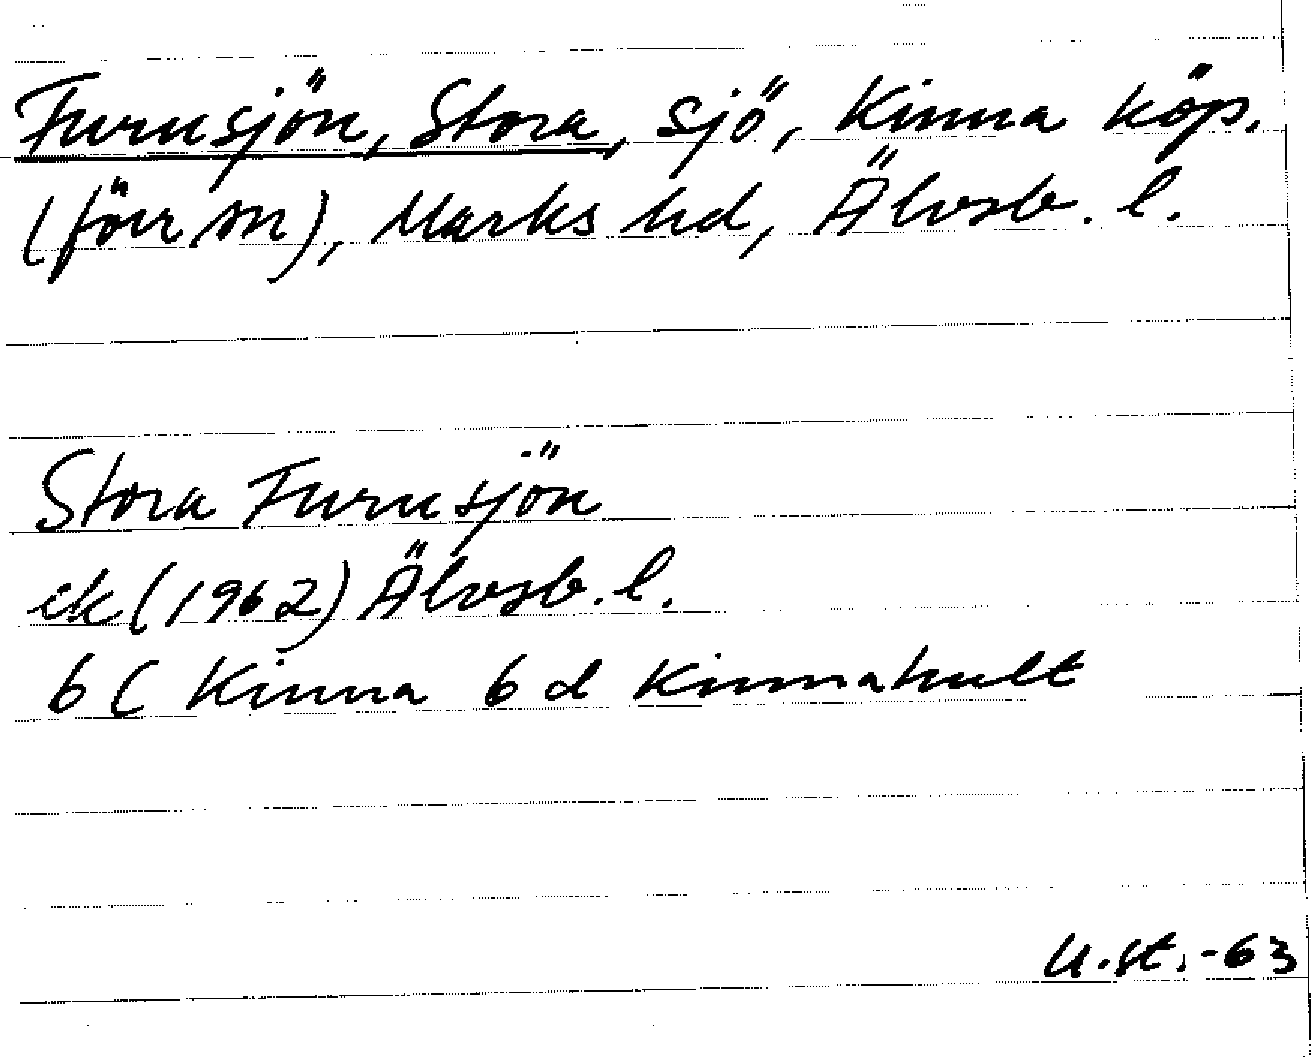 Furusjön, Stora, sjö, Kinna köp.
(förr sn), Marks hd, Älvsb. l.
Stora Furusjön
ek (1962) Älvsb. l.
6 C Kinna 6 d Kinnahult
U.st. -63